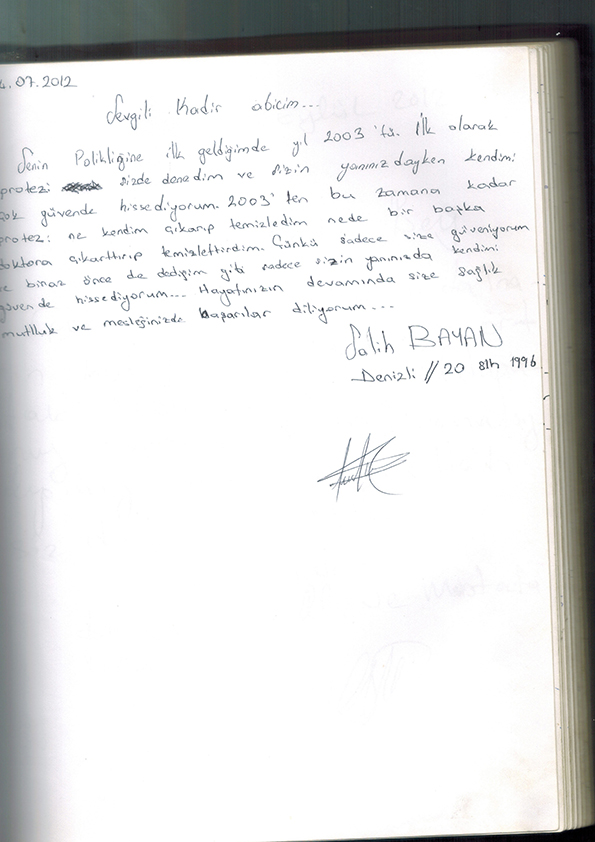 4.07.2012
Sevgili Kadir abicim...
Senin Polikliğine ilk geldiğimde yıl 2003'tü. İlk olarak
protezi sizde denedim ve sizin yanınızdayken kendimi
çok güvende hissediyorum. 2003'ten bu zamana kadar
protezi ne kendim çıkarıp temizledim nede bir başka
doktora çıkarttırıp temizlettirdim. Çünkü sadece size güveniyorum
ve biraz önce de dediğim gibi sadece sizin yanınızda kendimi
güvende hissediyorum... Hayatınızın devamında size sağlık
mutlluk ve mesleğinizde başarılar diliyorum...
Salih BAYAN
Denizli // 20 1996